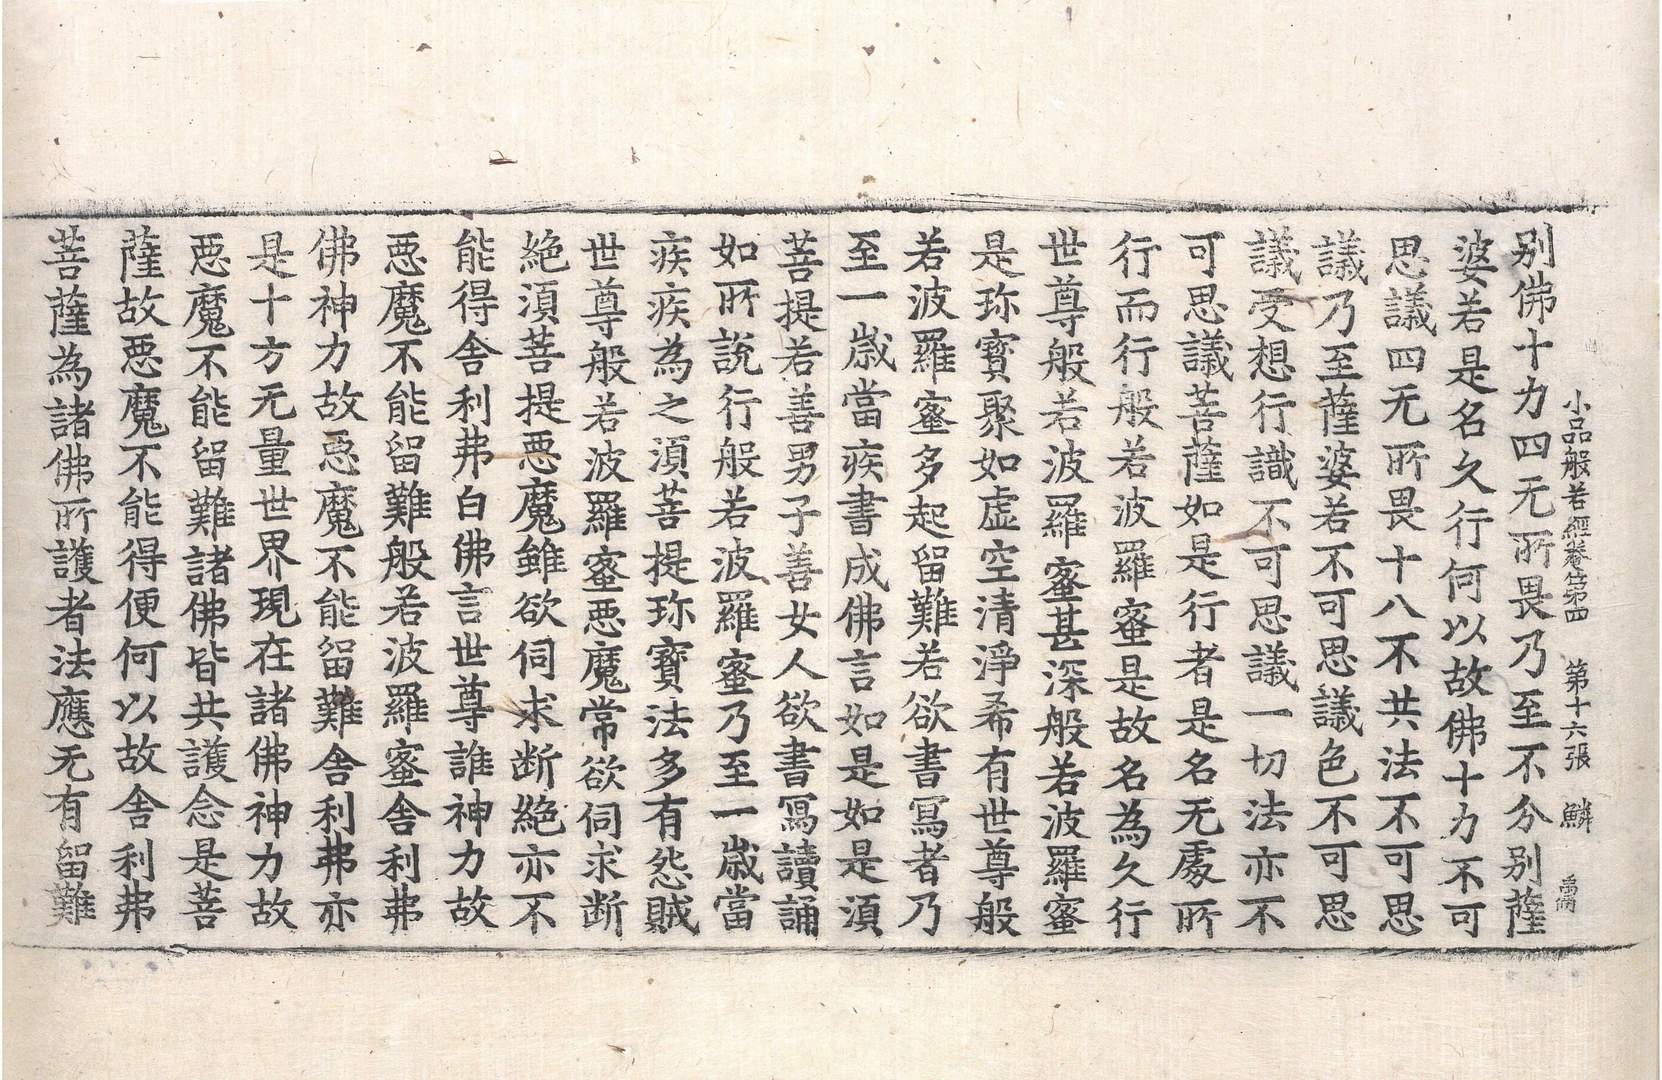 小品般若經卷第四 第十六張 鱗
別佛十力四无所畏乃至不分別薩
婆若是名久行何以故佛十力不可
思議四无所畏十八不共法不可思
議乃至薩婆若不可思議色不可思
議受想行識不可思議一切法亦不
可思議菩薩如是行者是名无處所
行而行般若波羅蜜是故名為久行
世尊般若波羅蜜甚深般若波羅蜜
是珎寶聚如虛空清淨希有世尊般
若波羅蜜多起留難若欲書寫者乃
至一歲當疾書成佛言如是如是湏
菩提若善男子善女人欲書寫讀誦
如所說行般若波羅蜜乃至一歲當
疾疾為之湏菩提珎寶法多有怨賊
世尊般若波羅蜜惡魔常欲伺求断
絕湏菩提惡魔雖欲伺求断絕亦不
能得舍利弗白佛言世尊誰神力故
惡魔不能留難般若波羅蜜舍利弗
佛神力故惡魔不能留難舍利弗亦
是十方无量世界現在諸佛神力故
惡魔不能留難諸佛皆共護念是菩
薩故惡魔不能得便何以故舍利弗
菩薩為諸佛所護者法應无有留難